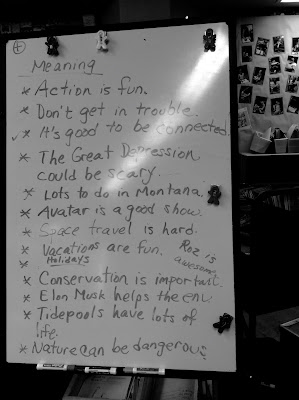 +
Meaning
* Action is fun.
* Don't get in trouble.
✓ * It's good to be connected.
* The Great Depression
could be scary.
* Lots to do in Montana.
* Avatar is a good show.
* Space travel is hard.
* Vacations are fun.
* Holidays
Roz is
awesome.
* Conservation is important.
* Elon Musk helps the env.
* Tidepools have lots of
life.
* Nature can be dangerous